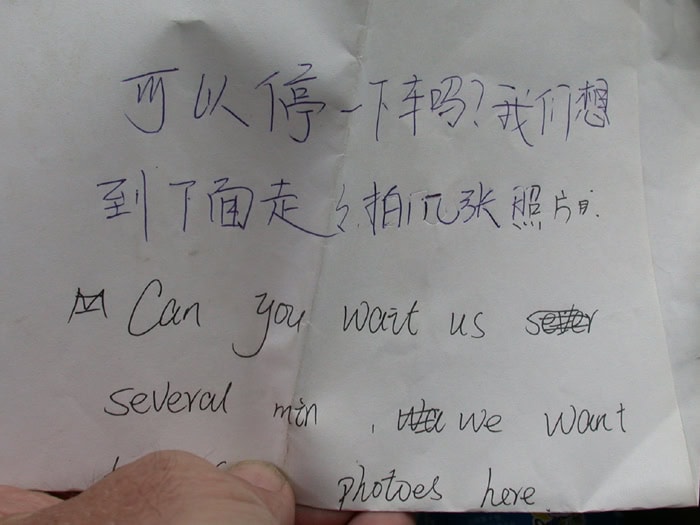 可以停一下车吗?我们想
到下面走 拍几张照片
Can you wait us
several min , we want
photoes here.